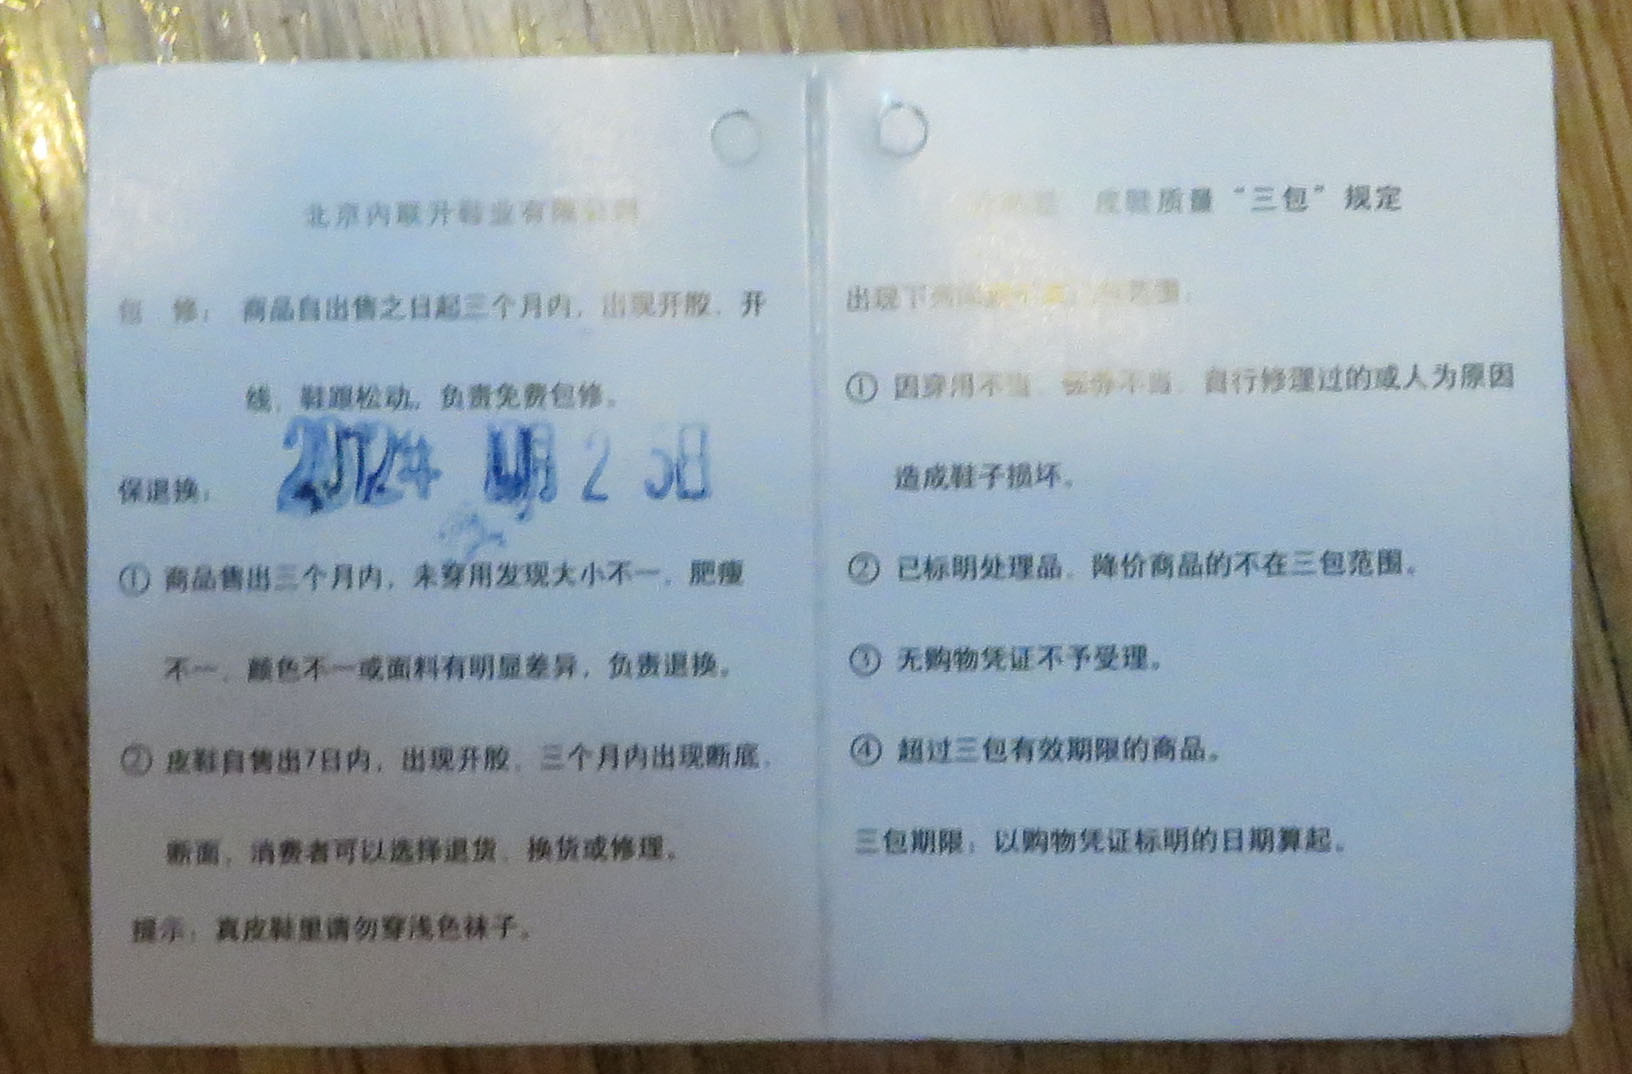 北京内联升鞋业有限公司
包 修： 商品自出售之日起三个月内，出现开胶、开
线、鞋跟松动，负责免费包修。
保退换：
2012年 月 2 5日
① 商品售出三个月内，未穿用发现大小不一、肥瘦
不一、颜色不一或面料有明显差异，负责退换。
② 皮鞋自售出7日内，出现开胶，三个月内出现断底、
断面，消费者可以选择退货、换货或修理。
提示：真皮鞋里请勿穿浅色袜子。
皮鞋质量“三包”规定
出现下列
① 因穿用不当、保养不当、自行修理过的或人为原因
造成鞋子损坏。
② 已标明处理品、降价商品的不在三包范围。
③ 无购物凭证不予受理。
④ 超过三包有效期限的商品。
三包期限：以购物凭证标明的日期算起。